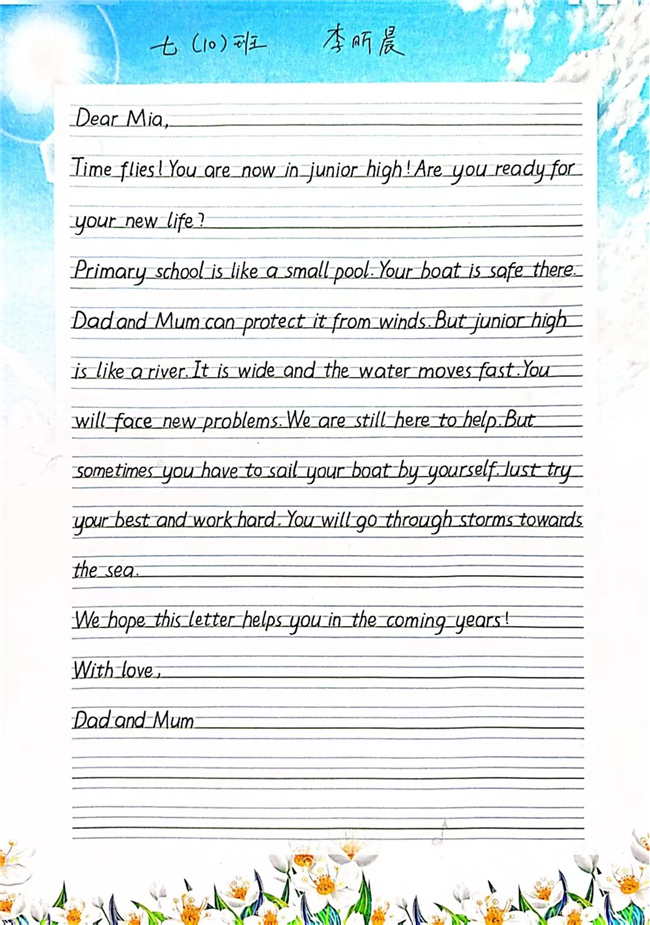 七（10）班 李昕晨
Dear Mia,
Time flies! You are now in junior high! Are you ready for
your new life?
Primary school is like a small pool. Your boat is safe there.
Dad and Mum can protect it from winds. But junior high
is like a river. It is wide and the water moves fast. You
will face new problems. We are still here to help. But
sometimes you have to sail your boat by yourself. Just try
your best and work hard. You will go through storms towards
the sea.
We hope this letter helps you in the coming years!
With love,
Dad and Mum